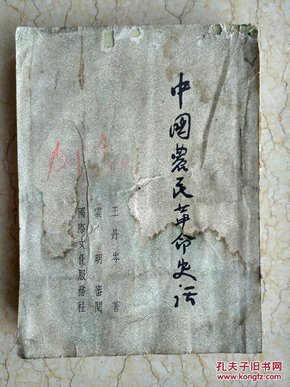 中國農民革命史話
王丹岑 著
明審閱
國際文化服務社
孔夫子旧书网